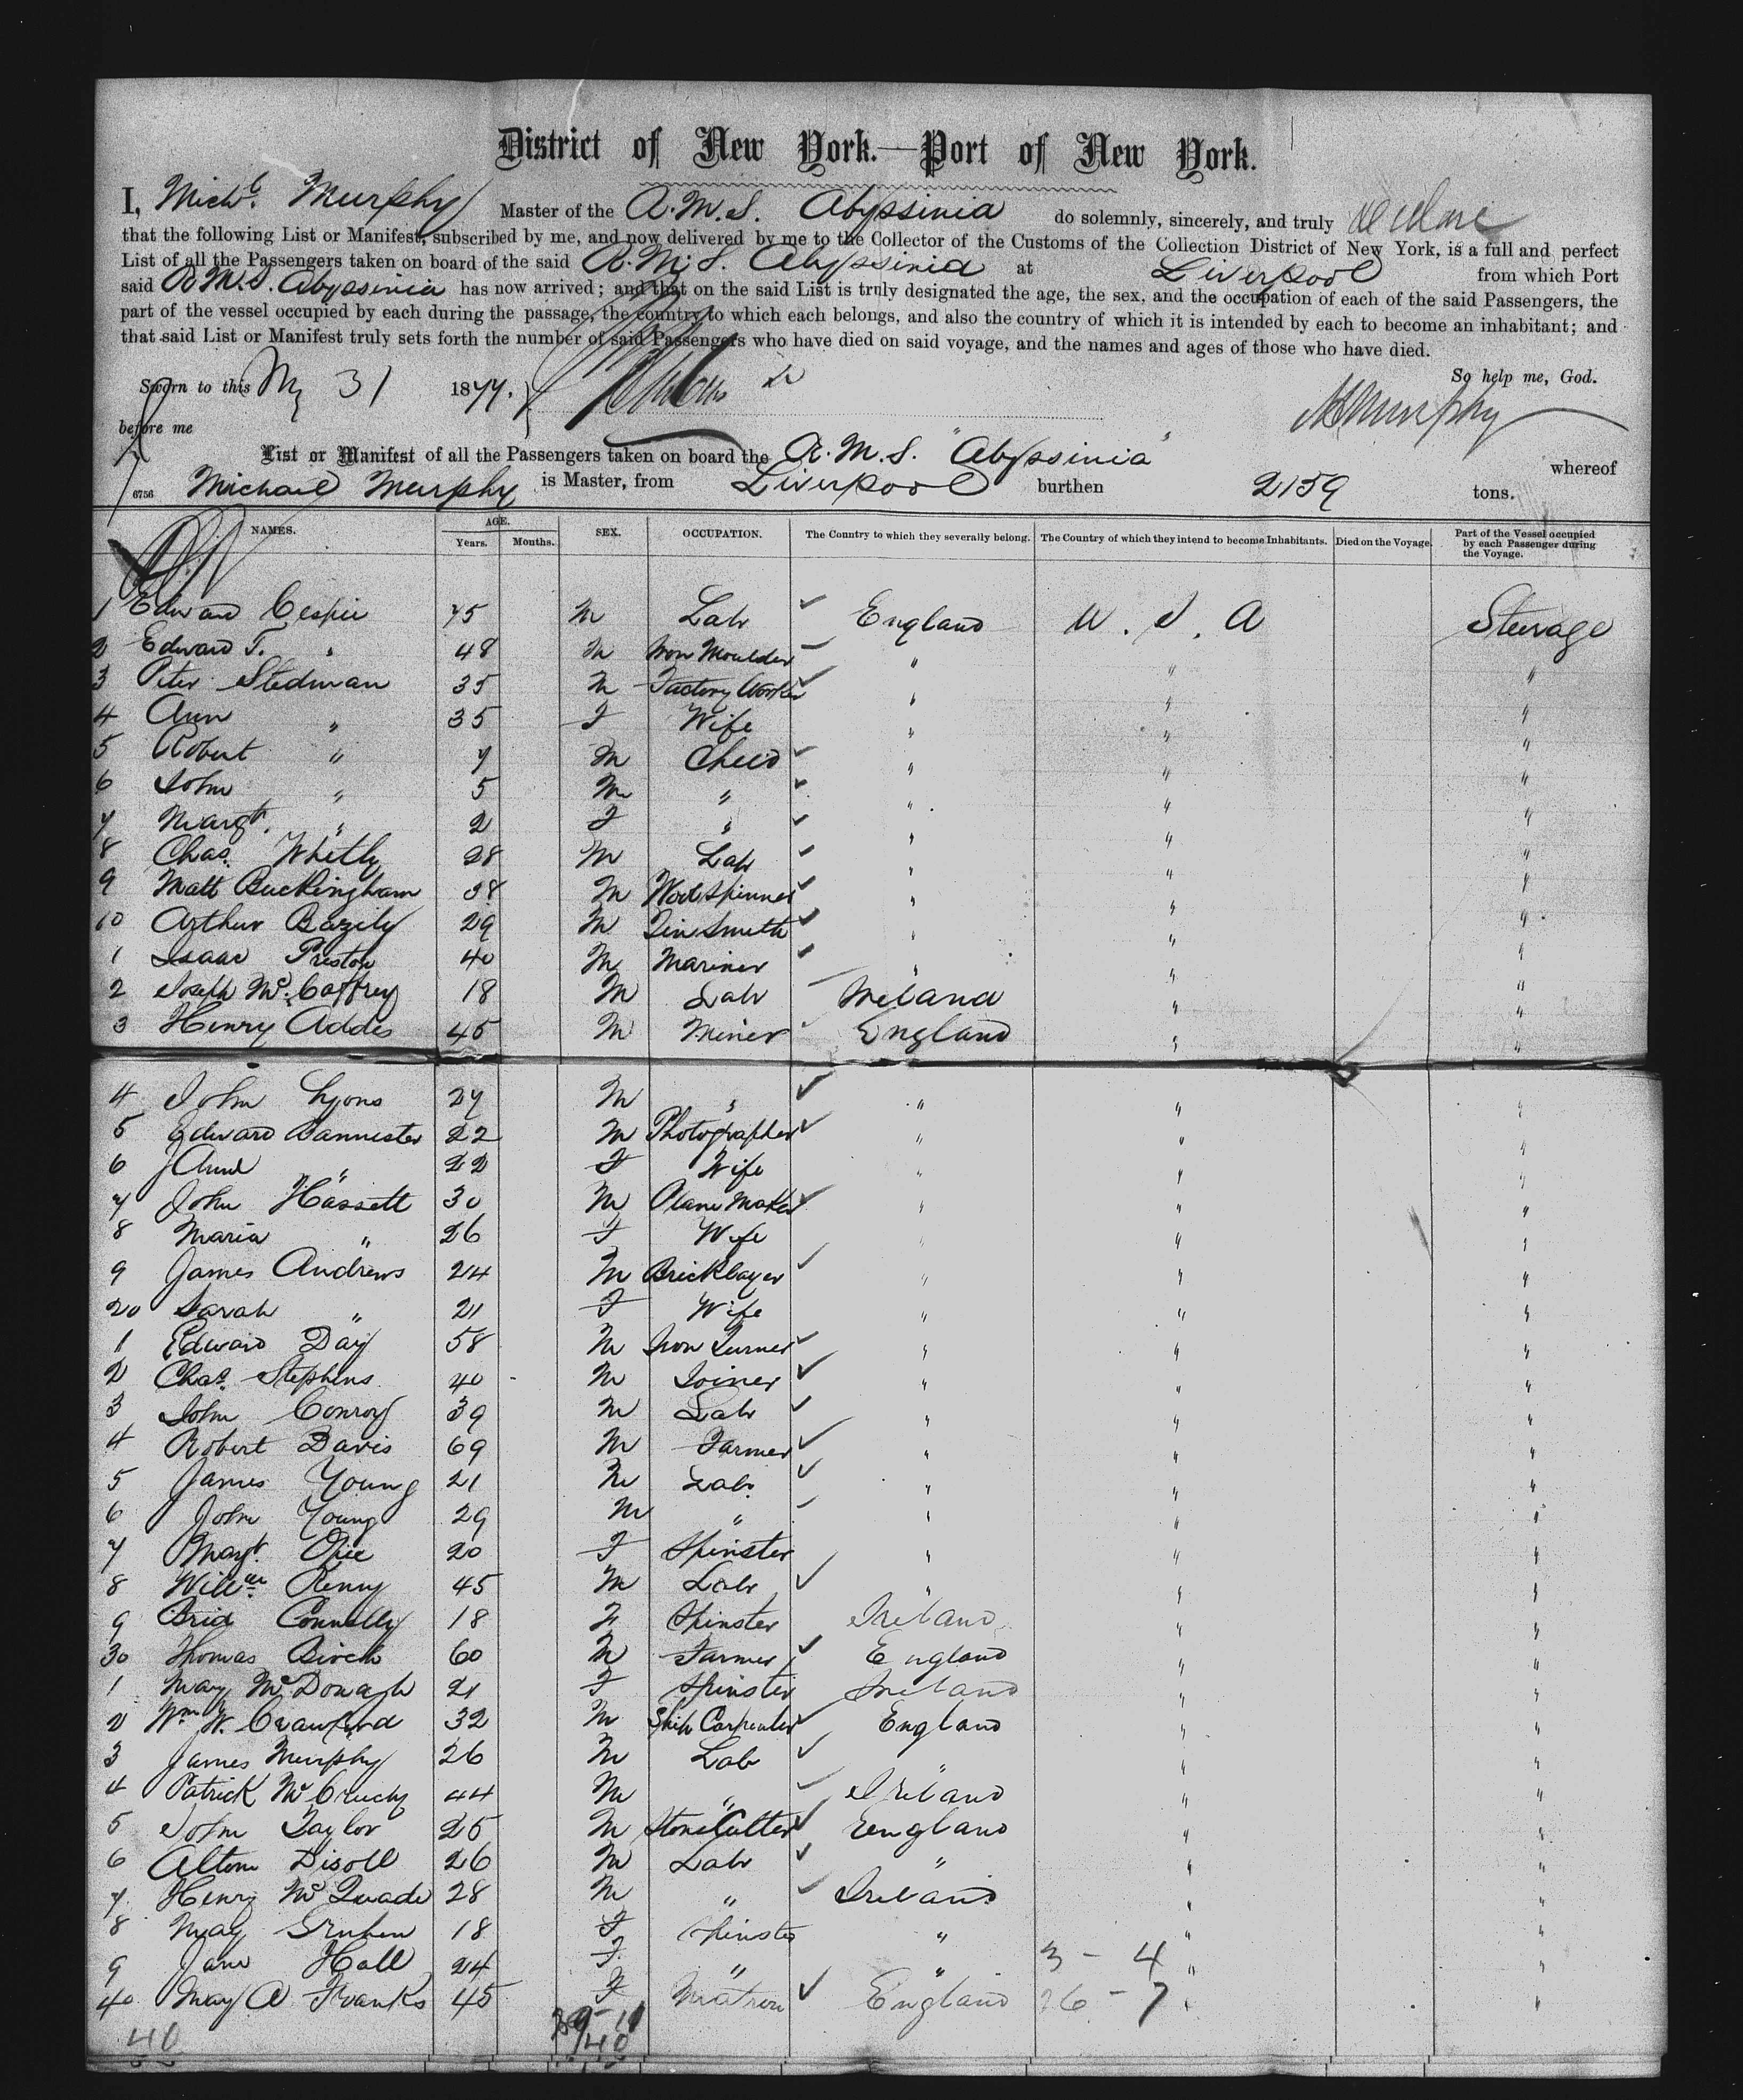 District of New York.—Port of New York.
I, Mich^l. Murphy Master of the R.M.S. Abyssinia do solemnly, sincerely, and truly declare
that the following List or Manifest, subscribed by me, and now delivered by me to the Collector of the Customs of the Collection District of New York, is a full and perfect
List of all the Passengers taken on board of the said R.M.S. Abyssinia at Liverpool from which Port
said R.M.S. Abyssinia has now arrived; and that on the said List is truly designated the age, the sex, and the occupation of each of the said Passengers, the
part of the vessel occupied by each during the passage, the country to which each belongs, and also the country of which it is intended by each to become an inhabitant; and
that said List or Manifest truly sets forth the number of said Passengers who have died on said voyage, and the names and ages of those who have died.
So help me, God.
Sworn to this My 31 1877.
M Murphy
before me
List or Manifest of all the Passengers taken on board the R.M.S. "Abyssinia" whereof
6756 Michael Murphy is Master, from Liverpool burthen 2159 tons.
NAMES. AGE. Years. Months. SEX. OCCUPATION. The Country to which they severally belong. The Country of which they intend to become Inhabitants. Died on the Voyage. Part of the Vessel occupied by each Passenger during the Voyage.
1 Edward 45 M Lab England U.S.A Steerage
2 Edward T. " 48 M Iron Moulder " " "
3 Peter Stedman 35 M Factory Worker " " "
4 Ann " 35 F Wife " " "
5 Robert " 7 M Child " " "
6 John " 5 M " " " "
7 Margt. " 2 F " " " "
8 Chas. Whitly 28 M Lab " " "
9 Matt Buckingham 38 M Wool Spinner " " "
10 Arthur Bazely 29 M Tin Smith " " "
1 Isaac Preston 40 M Mariner " " "
2 Joseph McCaffrey 18 M Lab Ireland " "
3 Henry Addis 45 M Miner England " "
4 John Lyons 27 M " " " "
5 Edward Bannister 22 M Photographer " " "
6 " 22 F Wife " " "
7 John Hassett 30 M Maker " " "
8 Maria " 26 F Wife " " "
9 James Andrews 24 M Bricklayer " " "
20 Sarah " 21 F Wife " " "
1 Edward Day 58 M Iron Turner " " "
2 Chas. Stephens 40 M Joiner " " "
3 John Conroy 39 M Lab " " "
4 Robert Davis 69 M Farmer " " "
5 James Young 21 M Lab. " " "
6 John Young 29 M " " " "
7 Margt. Opie 20 F Spinster " " "
8 Willm. 45 M Lab " " "
9 Brid Connelly 18 F Spinster Ireland " "
30 Thomas Birch 60 M Farmer England " "
1 Mary McDonagh 21 F Spinster Ireland " "
2 Wm. W. Crawford 32 M Ship Carpenter England " "
3 James Murphy 26 M Lab " " "
4 Patrick 44 M " Ireland " "
5 John Taylor 25 M Stone Cutter England " "
6 26 M Lab " " "
7 Henry McQuade 28 M " Ireland " "
8 Mary 18 F Spinster " " "
9 Jane Hall 24 F " " 3 - 4 " "
40 Mary A Franks 45 F Matron England 26 - 7 " "
40 40